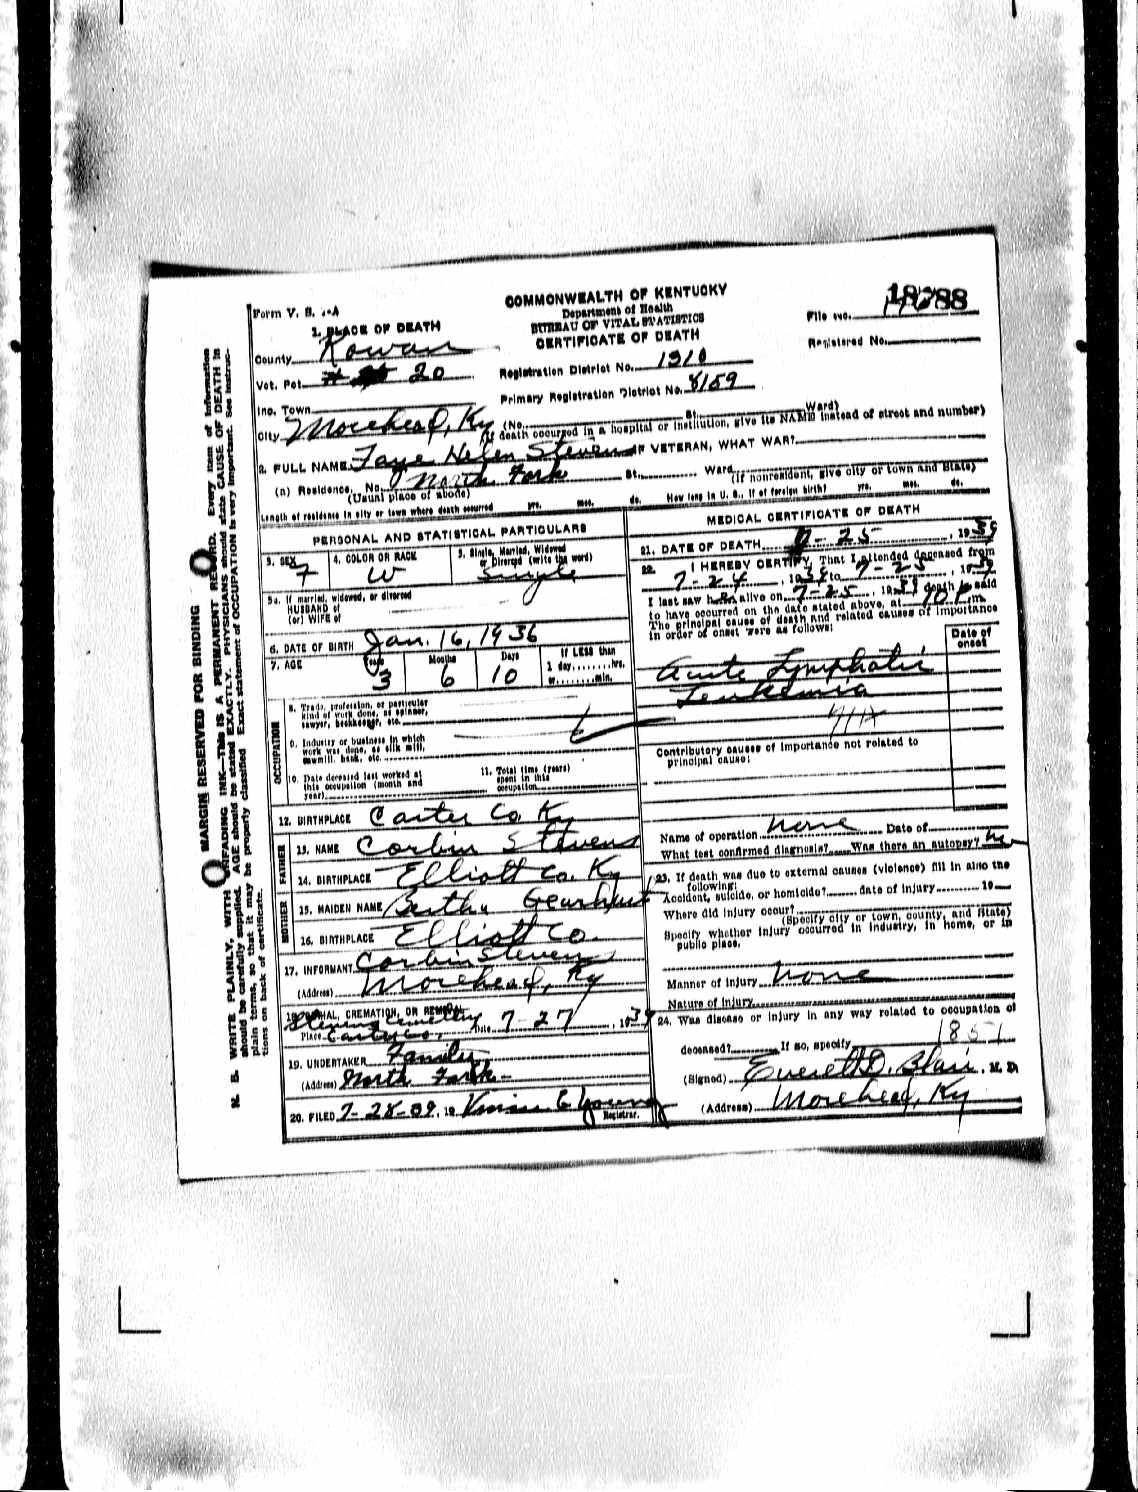 COMMONWEALTH OF KENTUCKY
Department of Health
BUREAU OF VITAL STATISTICS
CERTIFICATE OF DEATH
Form V. S. 1-A
File No. 
Registered No.
1. PLACE OF DEATH
County Rowan
Vot. Pct. # 20
Registration District No. 1310
Primary Registration District No. 8159
Inc. Town
City Morehead, Ky (No. St. Ward)
(If death occurred in a hospital or institution, give its NAME instead of street and number)
2. FULL NAME Faye Helen Stevens IF VETERAN, WHAT WAR?
(a) Residence, No. North Fork St. Ward
(Usual place of abode) (If nonresident, give city or town and State)
Length of residence in city or town where death occurred yrs. mos. ds. How long in U. S., if of foreign birth? yrs. mos. ds.
PERSONAL AND STATISTICAL PARTICULARS
3. SEX F
4. COLOR OR RACE W
5. Single, Married, Widowed or Divorced (write the word) Single
5a. If married, widowed, or divorced
HUSBAND of
(or) WIFE of
6. DATE OF BIRTH Jan. 16, 1936
7. AGE Years 3 Months 6 Days 10 If LESS than
1 day, hrs.
or min.
OCCUPATION
8. Trade, profession, or particular
kind of work done, as spinner,
sawyer, bookkeeper, etc.
9. Industry or business in which
work was done, as silk mill,
sawmill, bank, etc.
10. Date deceased last worked at
this occupation (month and
year)
11. Total time (years)
spent in this
occupation
12. BIRTHPLACE Carter Co. Ky
FATHER
13. NAME Corbin Stevens
14. BIRTHPLACE Elliott Co. Ky
MOTHER
15. MAIDEN NAME Bertha Gearheart
16. BIRTHPLACE Elliott Co.
17. INFORMANT Corbin Stevens
(Address) Morehead, Ky
18. BURIAL, CREMATION, OR REMOVAL
Cemetery
Place Carter Co. Date 7-27, 1939
19. UNDERTAKER Family
(Address) North Fork
20. FILED 7-28-39, 19 Young
Registrar.
MEDICAL CERTIFICATE OF DEATH
21. DATE OF DEATH 7-25, 1939
22. I HEREBY CERTIFY, That I attended deceased from
7-24, 1939 to 7-25, 1939
I last saw her alive on 7-25, 1939 death is said
to have occurred on the date stated above, at 10 P.m.
The principal cause of death and related causes of importance
in order of onset were as follows:
Date of
onset
Acute Lymphatic
Leukemia
Contributory causes of importance not related to
principal cause:
Name of operation None Date of
What test confirmed diagnosis? Was there an autopsy? No
23. If death was due to external causes (violence) fill in also the
following:
Accident, suicide, or homicide? date of injury 19
Where did injury occur?
(Specify city or town, county, and State)
Specify whether injury occurred in industry, in home, or in
public place.
Manner of injury None
Nature of injury
24. Was disease or injury in any way related to occupation of
deceased? If so, specify
(Signed) Everett D. Blair, M. D.
(Address) Morehead, Ky
MARGIN RESERVED FOR BINDING
N. B. WRITE PLAINLY, WITH UNFADING INK—THIS IS A PERMANENT RECORD. Every item of information
should be carefully supplied. AGE should be stated EXACTLY. PHYSICIANS should state CAUSE OF DEATH in
plain terms, so that it may be properly classified. Exact statement of OCCUPATION is very important. See instruc-
tions on back of certificate.